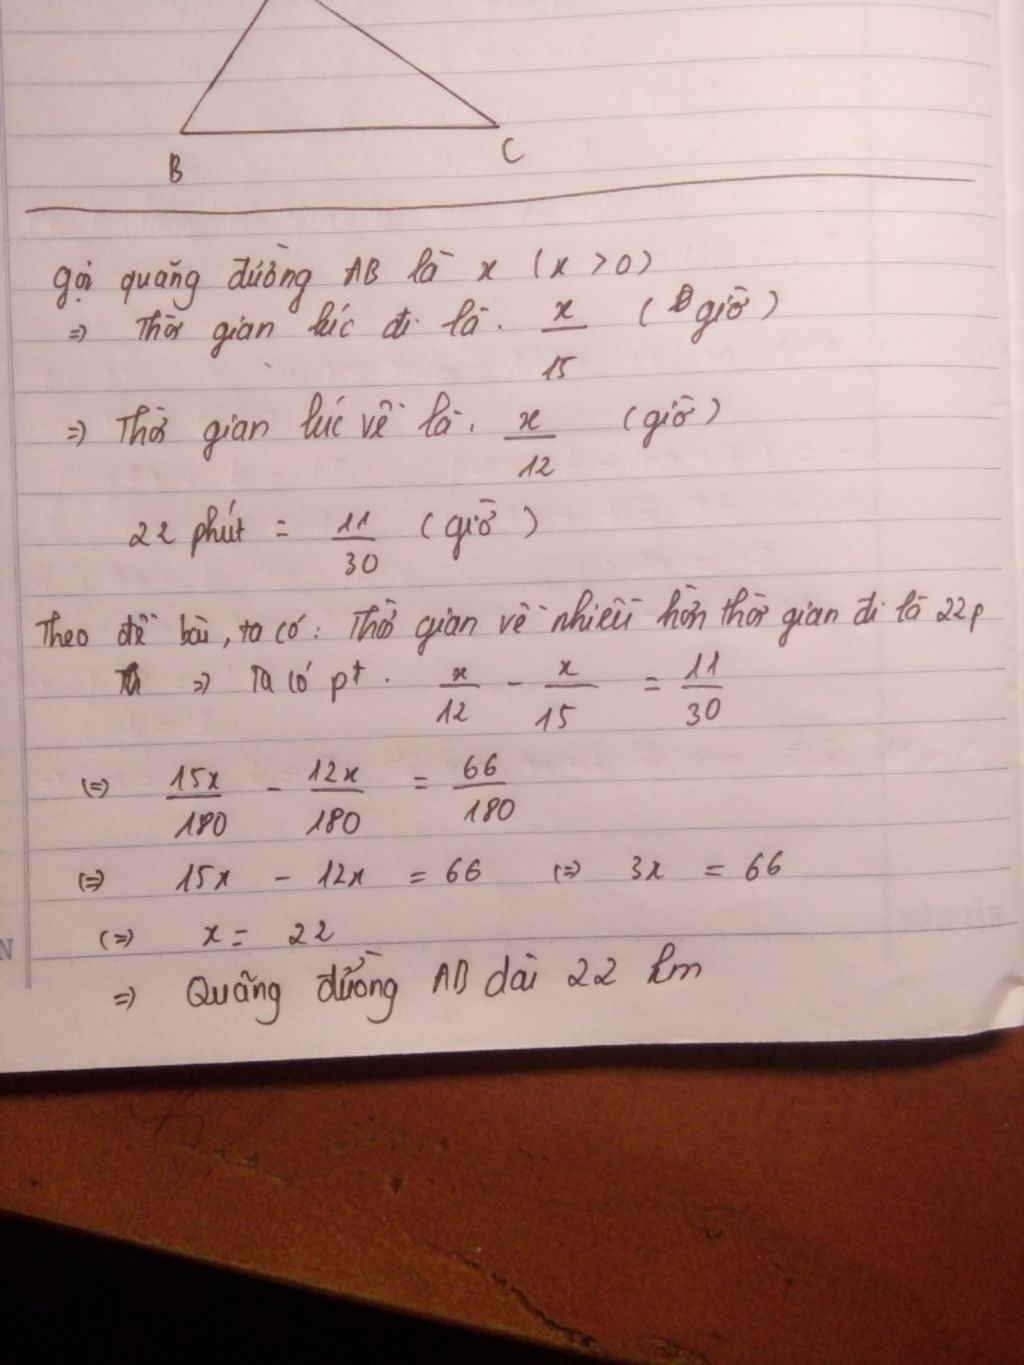 B
C
Gọi quãng đường AB là x (x > 0)
=> Thời gian lúc đi là. x/15 (giờ)
=> Thời gian lúc về là. x/12 (giờ)
22 phút = 11/30 (giờ)
Theo đề bài, ta có: Thời gian về nhiều hơn thời gian đi là 22p
=> Ta có pt. x/12 - x/15 = 11/30
(=) 15x/180 - 12x/180 = 66/180
(=) 15x - 12x = 66 (=) 3x = 66
(=) x = 22
=> Quãng đường AB dài 22 km
N